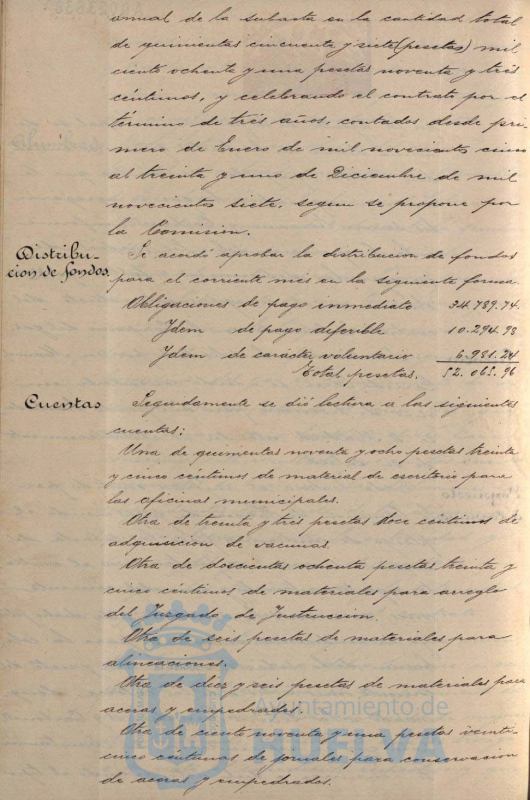 anual de la subasta en la cantidad total
de quinientas cincuenta y siete (pesetas) mil
ciento ochenta y una pesetas noventa y trés
céntimos, y celebrando el contrato por el
término de trés años, contados desde pri-
mero de Enero de mil novecientos cinco
al treinta y uno de Diciembre de mil
novecientos siete, segun se propone por
la Comision.
Distribu-
cion de fondos.
Se acordó aprobar la distribucion de fondos
para el corriente més en la siguiente forma
Obligaciones de pago inmediato 34.789.74.
Idem de pago diferible 10.294.98
Idem de carácter voluntario 6.981.24
Total pesetas. 52.065.96
Cuentas
Seguidamente se dió lectura a las siguientes
cuentas:
Una de quinientas noventa y ocho pesetas treinta
y cinco céntimos de material de escritorio para
las oficinas municipales.
Otra de treinta y trés pesetas doce centimos de
adquisicion de vacunas.
Otra de doscientas ochenta pesetas treinta y
cinco céntimos de materiales para arreglo
del Juzgado de Instruccion.
Otra de seis pesetas de materiales para
alineaciones.
Otra de diez y seis pesetas de materiales para
aceras y empedrados.
Otra de ciento noventa y una pesetas veinti-
cinco céntimos de jornales para conservacion
de aceras y empedrados.
Ayuntamiento de
HUELVA